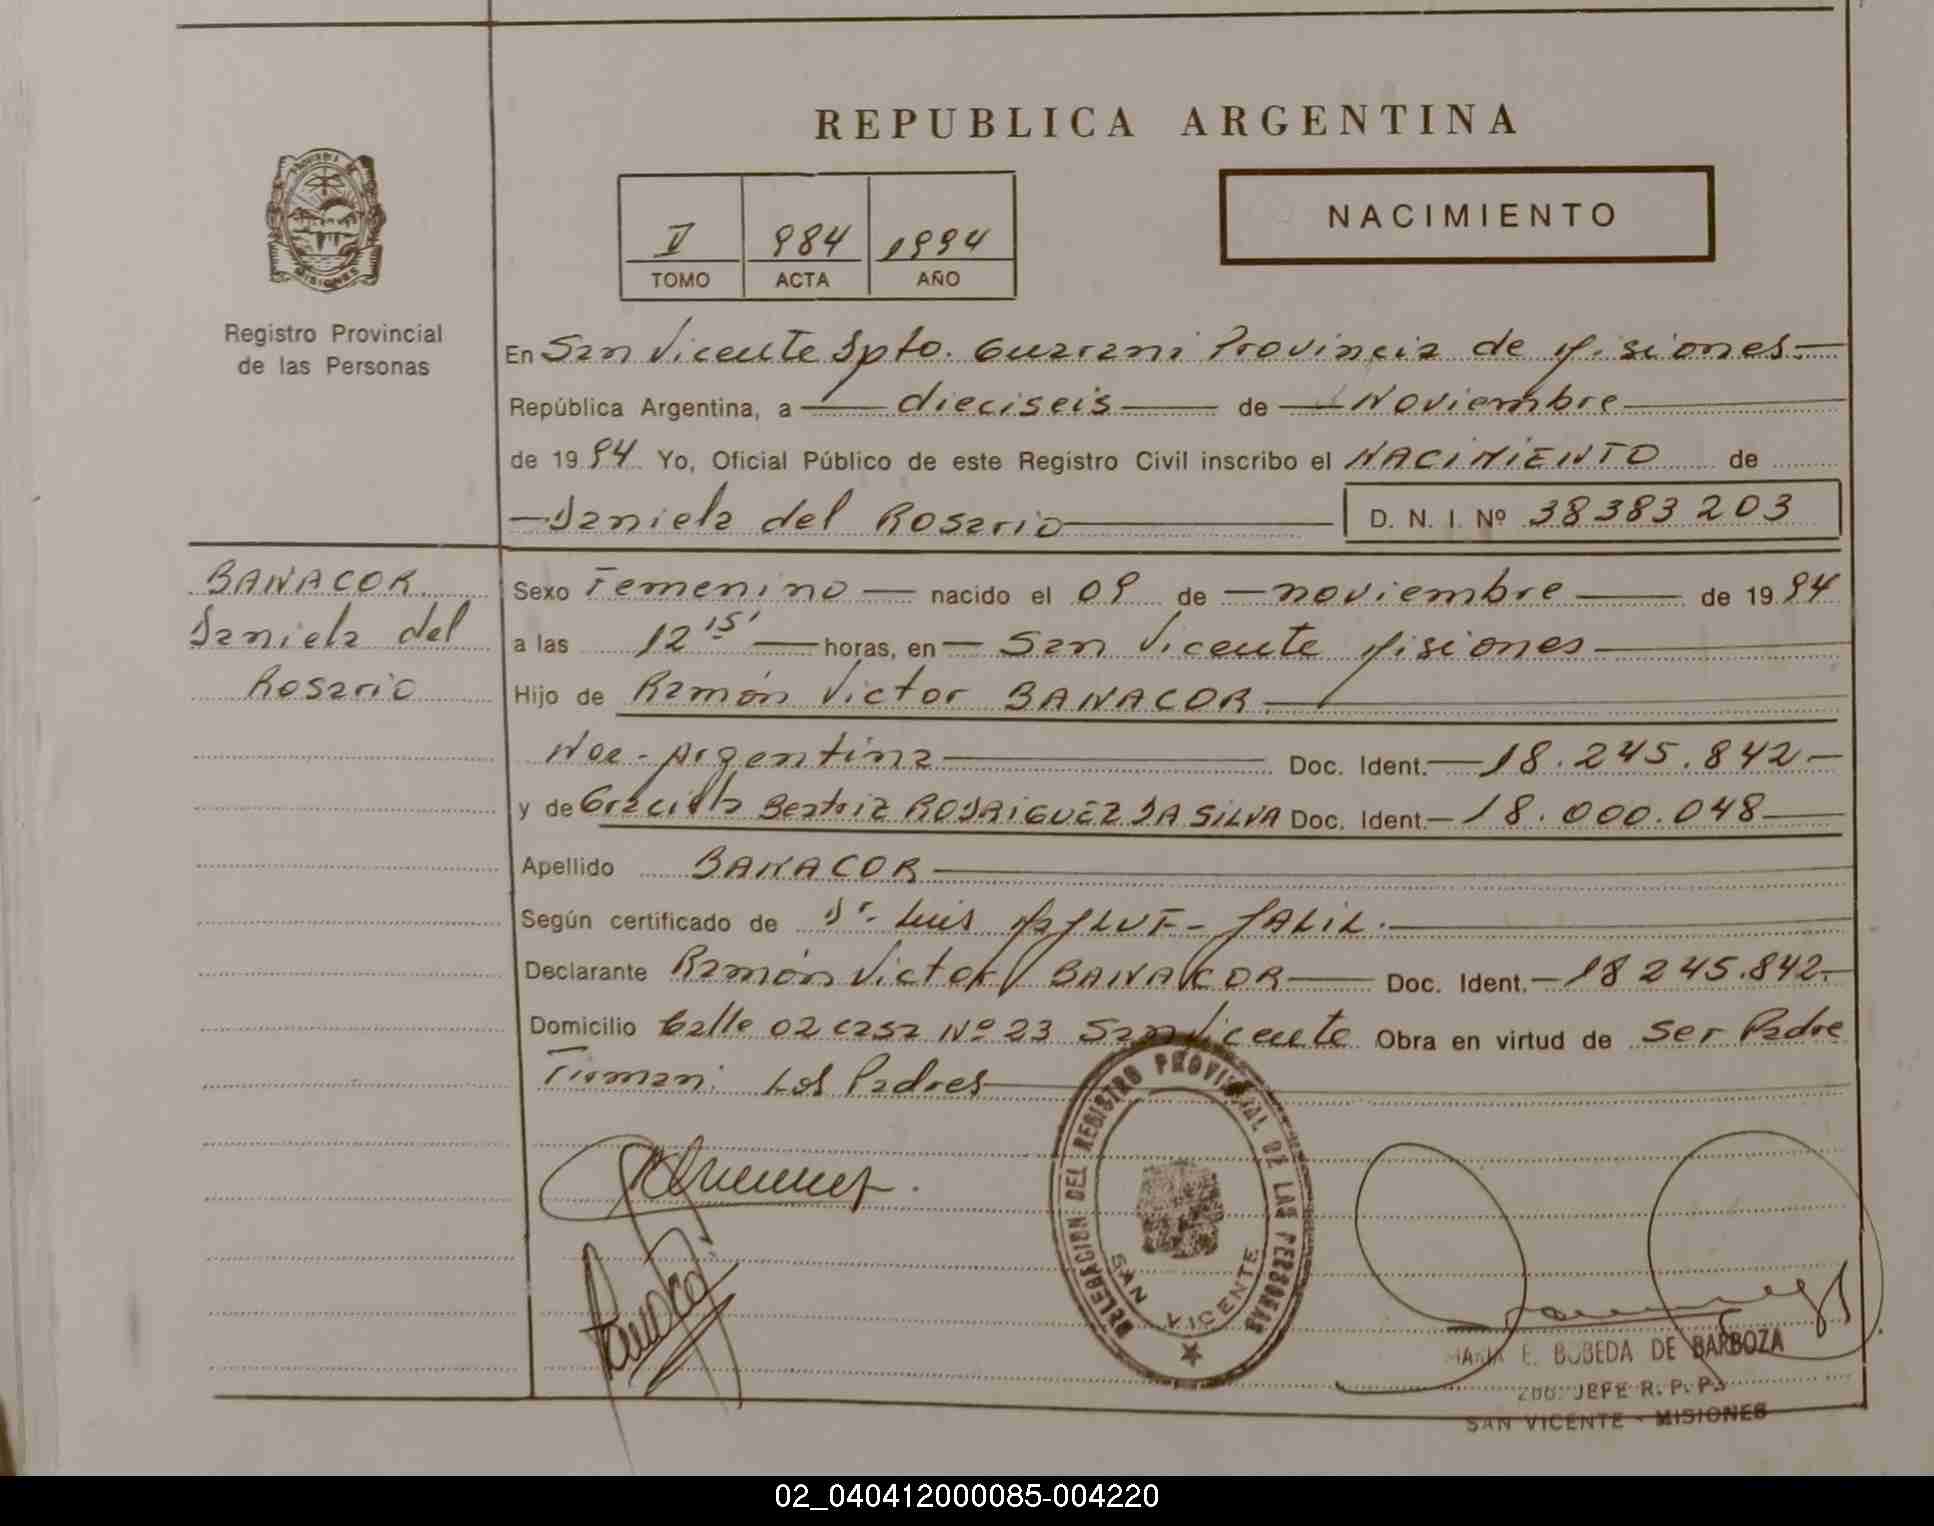 REPUBLICA ARGENTINA
NACIMIENTO
V 984 1994
TOMO ACTA AÑO
MISIONES
Registro Provincial
de las Personas
En San Vicente Dpto. Guarani Provincia de Misiones.
República Argentina, a dieciseis de Noviembre
de 1994 Yo, Oficial Público de este Registro Civil inscribo el NACIMIENTO de
Daniela del Rosario D. N. I. Nº 38383203
BANACOR
Daniela del
Rosario
Sexo Femenino nacido el 09 de noviembre de 1994
a las 12 15' horas, en San Vicente Misiones
Hijo de Ramón Victor BANACOR
Nac - Argentina Doc. Ident. 18.245.842
y de Graciela Beatriz RODRIGUEZ DA SILVA Doc. Ident. 18.000.048
Apellido BANACOR
Según certificado de Dr. Luis JALIL.
Declarante Ramón Victor BANACOR Doc. Ident. 18245.842
Domicilio Calle 02 casa Nº 23 San Vicente Obra en virtud de ser Padre
Firman: Los Padres
DELEGACION DEL REGISTRO PROVINCIAL DE LAS PERSONAS
SAN VICENTE
MARIA E. BOBEDA DE BARBOZA
2DO. JEFE R. P. P.
SAN VICENTE - MISIONES
02_040412000085-004220